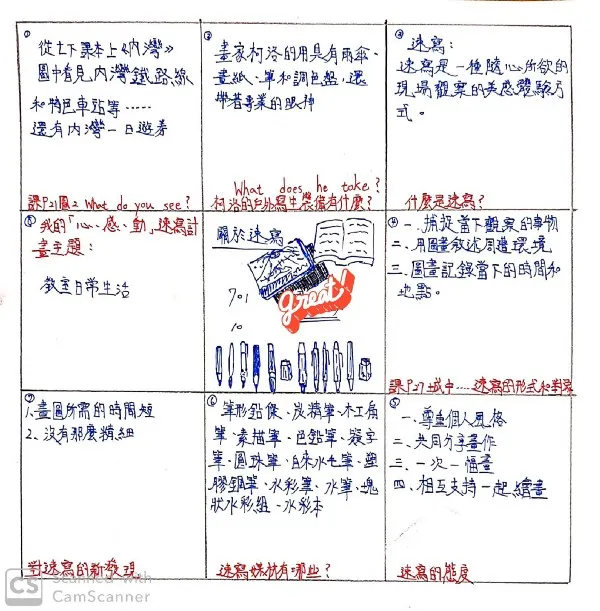 ①
從七下課本上《內灣》
圖中看見內灣鐵路線
和特色車站等……
還有內灣一日遊券
課P21圖2 What do you see?
②
畫家柯洛的用具有雨傘、
畫紙、筆和調色盤,還
帶著專業的眼神
What does he take?
柯洛的戶外寫生裝備有什麼?
③ 速寫:
速寫是一種隨心所欲的
現場觀察的美感體驗方
式。
什麼是速寫?
⑧ 我的「心、感、動」速寫計
畫主題:
教室日常生活
關於速寫
701
10
great!
④ 一. 捕捉當下觀察的事物
二. 用圖畫敘述周遭環境
三. 圖畫記錄當下的時間和
地點。
速寫的形式和對象
⑦
1. 畫圖所需的時間短
2. 沒有那麼精細
對速寫的新發現
⑥ 筆形鉛條、炭精筆、木工用
筆、素描筆、色鉛筆、簽字
筆、圓珠筆、自來水毛筆、塑
膠鋼筆、水彩筆、水筆、塊
狀水彩組、水彩本
速寫媒材有哪些?
⑤
一、尊重個人風格
二、共同分享畫作
三、一次一幅畫
四、相互支持一起繪畫
速寫的態度
CS Scanned with
CamScanner